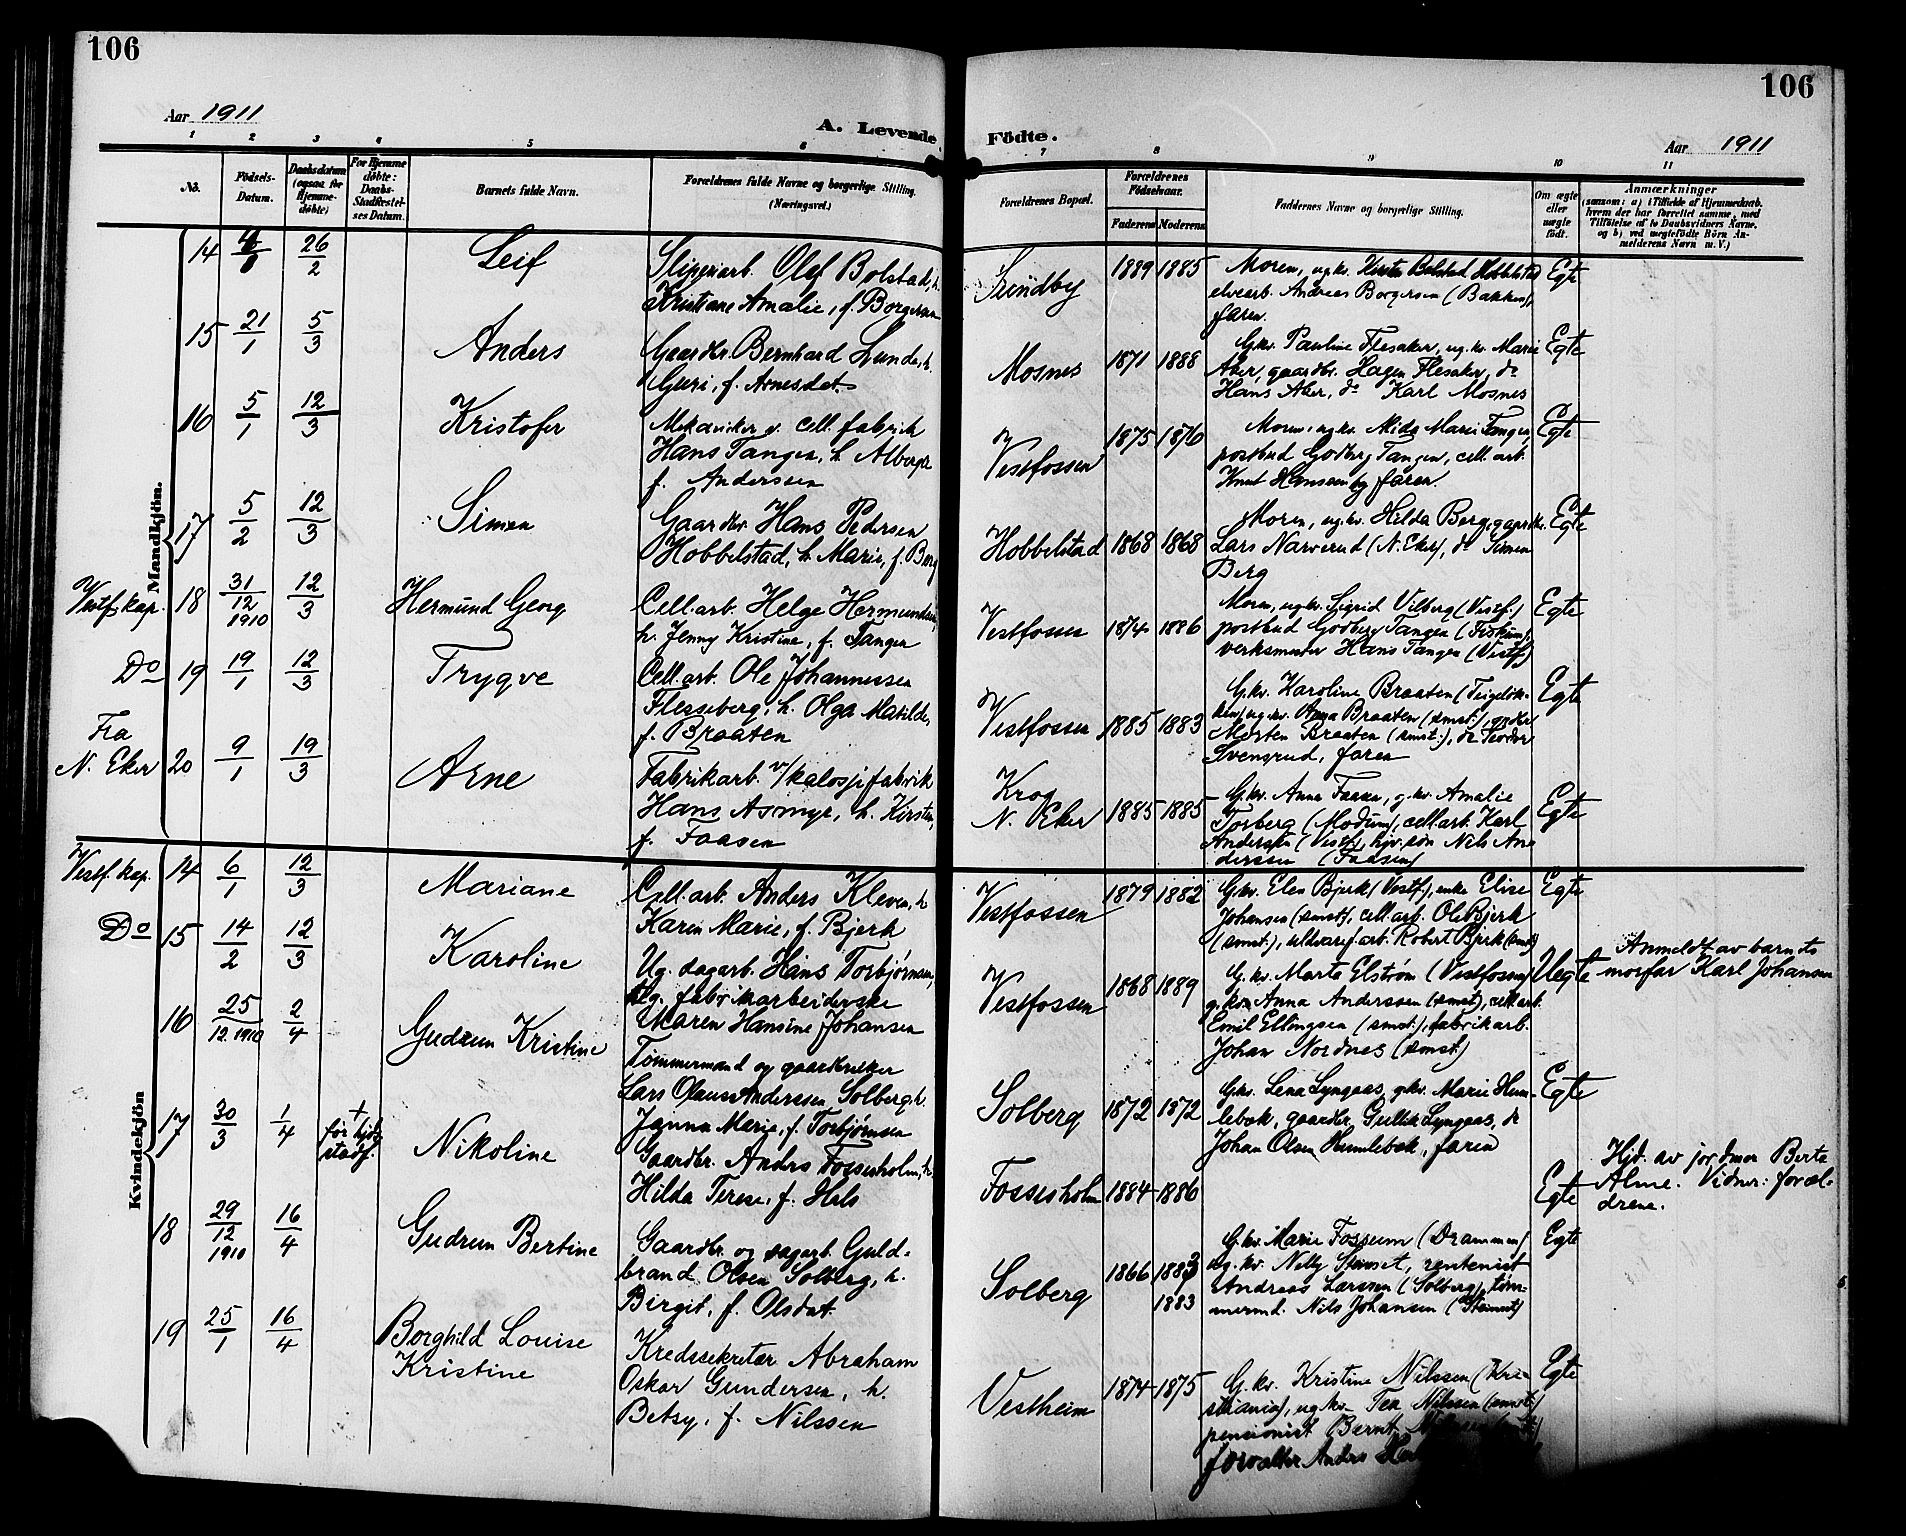 106
Aar 1911
A. Levende
1 2 3 4 5 6
No.
Fødsels-
Datum.
Daabsdatum
(ogsaa for
Hjemme-
døbte)
For Hjemme
døbte:
Daabs-
Stadfæstel-
ses Datum.
Barnets fulde Navn.
Forældrenes fulde Navne og borgerlige Stilling.
(Næringsvei.)
Mandkjön.
14 26/2 Leif
Sliperiarb. Olaf Bolstad, h.
Kristiane Amalie, f. Borgersen
15 21/1 5/3 Anders
Gaardbr. Bernhard Lunde, h.
Guri, f. Arnesdat.
16 5/1 12/3 Kristofer
Mekaniker v. cell. fabrik
Hans Tangen, h. Alborge
f. Anderssen
17 5/2 12/3 Simen
Gaardbr. Hans Pedersen
Hobbelstad, h. Marie, f. Berg
Vestf. kap. 18 31/12 1910 12/3 Hermund Georg
Cell. arb. Helge Hermundsen,
h. Jenny Kristine, f. Tangen
Do 19 19/1 12/3 Trygve
Cell. arb. Ole Johannessen
Flesseberg, h. Olga Matilde,
f. Braaten
Fra
N. Eker 20 9/1 19/3 Arne
Fabrikarb. v/kalosjefabrik
Hans Asmyr, h. Kirsten,
f. Faasen
Kvindekjön
Vestf. kap. 14 6/1 12/3 Mariane
Cell. arb. Anders Kleven, h.
Karen Marie, f. Bjerk
Do 15 14/2 12/3 Karoline
Ug. dagarb. Hans Torbjørnsen,
Ug. fabrikarbeiderske
Maren Hansine Johansen
16 25/12 1910 2/4 Gudrun Kristine
Tømmermand og gaardbruker
Lars Olaus Anderssen Solberg h.
Janna Marie, f. Torbjørnsen
17 30/3 1/4 + før hjdp.
stadf.
Nikoline
Gaardbr. Anders Fossesholm, h.
Hilda Terese, f. Hals
18 29/12 1910 16/4 Gudrun Bertine
Gaardbr. og sagarb. Guld-
brand Olsen Solberg, h.
Birgit, f. Olsdat.
19 25/1 16/4 Borghild Louise
Kristine
Kredssekretær Abraham
Oskar Gundersen, h.
Betsy, f. Nilssen
106
Födte.
Aar 1911
7 8 9 10 11
Forældrenes Bopæl.
Forældrenes
Födselsaar.
Faderens Moderens
Faddernes Navne og borgerlige Stilling.
Om ægte
eller
uægte
født.
Anmærkninger
(saasom: a) i Tilfælde af Hjemmedaab.
hvem der har forrettet samme, med
Tilföielse af to Daabsvidners Navne.
og b) ved uægtefödte Börn An-
melderens Navn m. V.)
Sundby 1889 1885
Moren, ug.kv. Kirstin Bolstad Hobbelstad
elvearb. Andreas Borgersen (Bakken),
faren.
Egte
Mosnes 1871 1888
G.kv. Pauline Flesaker, ug. kv. Marie
Aker, gaardbr. Hagen Flesaker, do
Hans Aker, do Karl Mosnes
Egte
Vestfossen 1875 1876
Moren, ug.kv. Mida Marie Tangen,
postbud Godberg Tangen, cell. arb.
Knut Hanssen og faren.
Egte
Hobbelstad 1868 1868
Moren, ug.kv. Hilda Berg,
Lars Narverud (N. Eker), do Simen
Berg
Egte
Vestfossen 1874 1886
Moren, ug.kv. Sigrid Vilberg (Vestf.)
postbud Godberg Tangen (Fiskum),
verksmester Hans Tangen (Vestf.)
Egte
Vestfossen 1885 1883
G.kv. Karoline Braaten
ug.kv. Anna Braaten (smst.),
Morten Braaten (smst.), do Teodor
Svensrud, faren
Egte
Krog
N. Eker 1885 1885
G.kv. Anna Faasen, g.kv. Amalie
Torberg (Modum), cell. arb. Karl
Anderssen (Vestf.), hjv. søn Nils An-
derssen (Faasen)
Egte
Vestfossen 1879 1882
G.kv. Elen Bjerk (Vestf.), enke Elise
Johansen (smst.), cell. arb. Ole Bjerk
(smst.), uldvaref. arb. Robert Bjerk (smst.)
Egte
Vestfossen 1868 1889
G.kv. Marte Elstrøm (Vestfossen)
g.kv. Anna Anderssen (smst.), cell. arb.
Emil Ellingsen (smst.), fabrikarb.
Johan Nordnes (smst.)
Uegte
Anmeldt av barnets
morfar Karl Johansen
Solberg 1872 1872
G.kv. Lena Lyngaas, g.kv. Marie Hum-
lebæk, gaardbr. Gullik Lyngaas, do
Johan Olsen Humlebæk, faren
Egte
Fossesholm 1884 1886
Egte
Hjd. av jordmor Berta
Alme. Vidner: foræl-
drene.
Solberg 1866 1883
1883
G.kv. Marie Fossum (Drammen)
ug.kv. Nelly Stenset, rentenist
Andreas Larssen (Solberg), tøm-
mermd. Nils Johansen (Stenset)
Egte
Vestheim 1874 1875
G.kv. Kristine Nilssen (Kri-
stiania), ug.kv. Tea Nilssen (smst.)
pensionist Bernt Nilssen
forvalter Anders
Egte